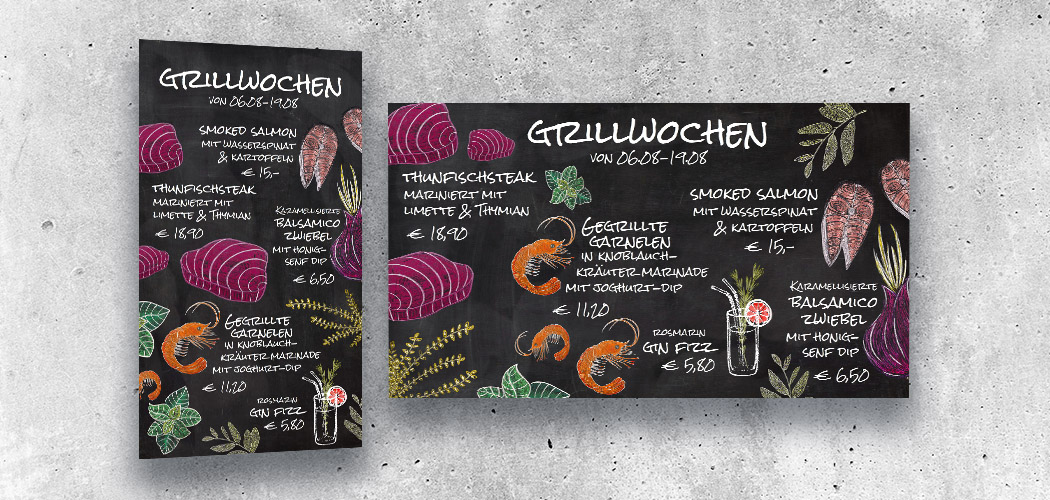 GRILLWOCHEN
VON 06.08-19.08
SMOKED SALMON
MIT WASSERSPINAT
& KARTOFFELN
€ 15,-
THUNFISCHSTEAK
MARINIERT MIT
LIMETTE & THYMIAN
€ 18,90
KARAMELLISIERTE
BALSAMICO
ZWIEBEL
MIT HONIG-
SENF DIP
€ 6,50
GEGRILLTE
GARNELEN
IN KNOBLAUCH-
KRÄUTER MARINADE
MIT JOGHURT-DIP
€ 11,20
ROSMARIN
GIN FIZZ
€ 5,80
GRILLWOCHEN
VON 06.08-19.08
THUNFISCHSTEAK
MARINIERT MIT
LIMETTE & THYMIAN
€ 18,90
GEGRILLTE
GARNELEN
IN KNOBLAUCH-
KRÄUTER MARINADE
MIT JOGHURT-DIP
€ 11,20
SMOKED SALMON
MIT WASSERSPINAT
& KARTOFFELN
€ 15,-
ROSMARIN
GIN FIZZ
€ 5,80
KARAMELLISIERTE
BALSAMICO
ZWIEBEL
MIT HONIG-
SENF DIP
€ 6,50